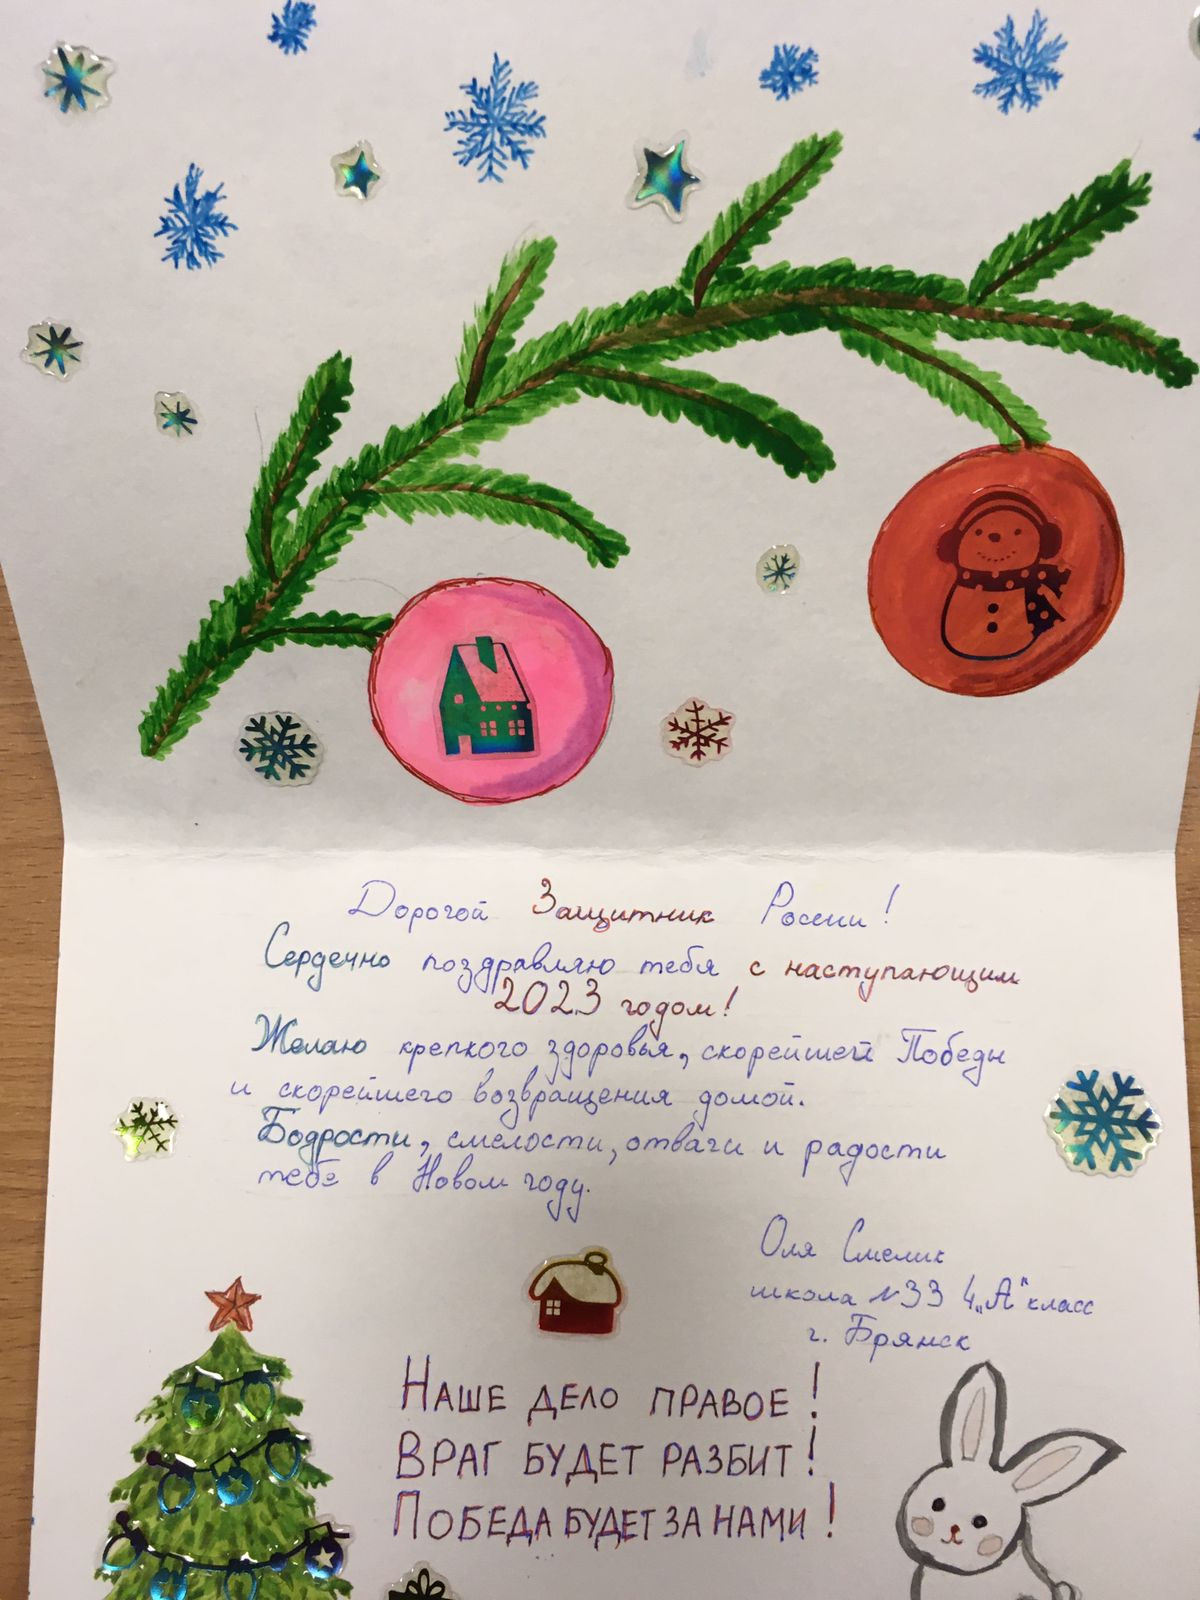 Дорогой Защитник России!
Сердечно поздравляю тебя с наступающим
2023 годом!
Желаю крепкого здоровья, скорейшей Победы
и скорейшего возвращения домой.
Бодрости, смелости, отваги и радости
тебе в Новом году.
Оля Смелик
школа №33 4„А“ класс
г. Брянск
НАШЕ ДЕЛО ПРАВОЕ!
ВРАГ БУДЕТ РАЗБИТ!
ПОБЕДА БУДЕТ ЗА НАМИ!